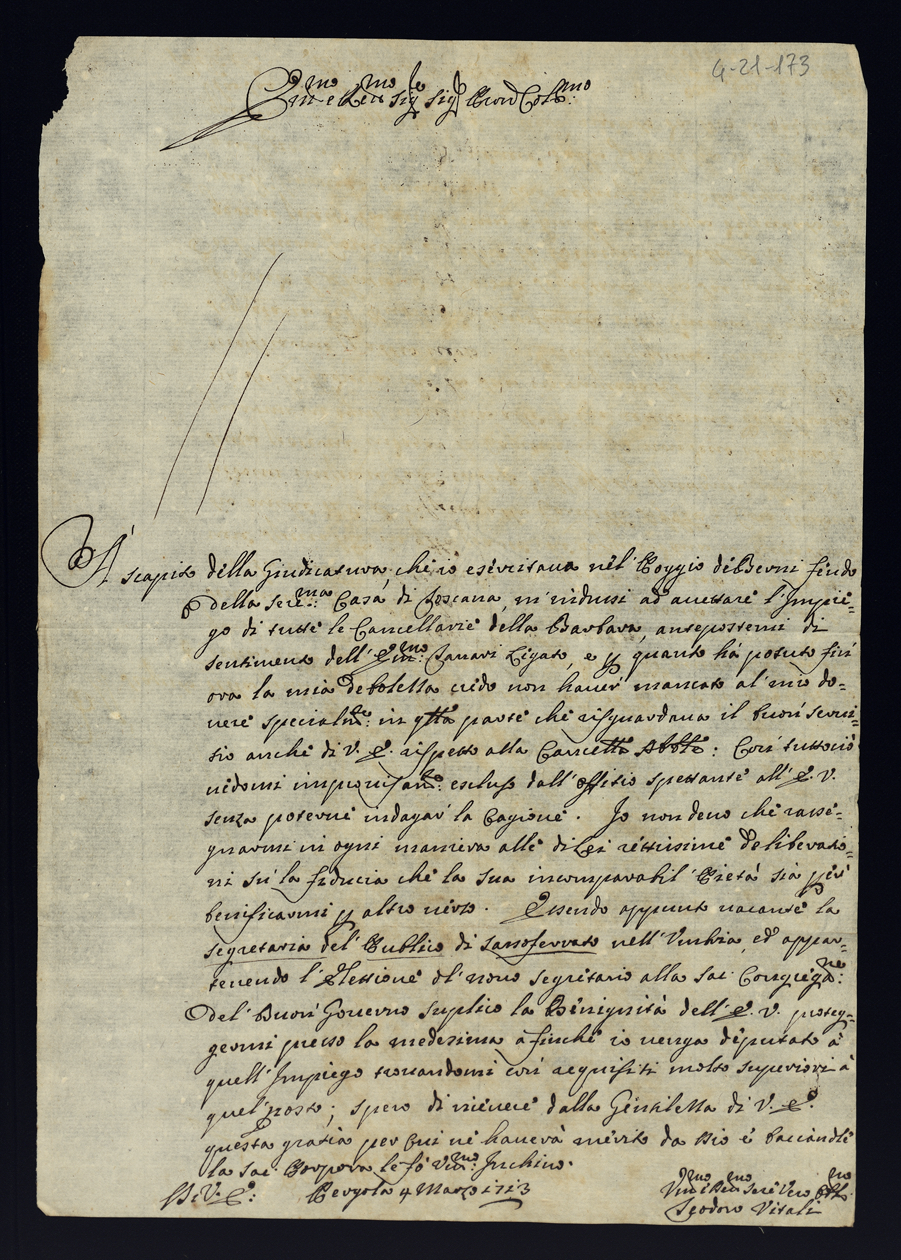 4-21-173
Em.mo e Rev.mo Sig.re Sig.re Pron Col.mo
A' scapito della Giudicatura, che io esercitava nel Poggio de Berni feudo
della Ser.ma Casa di Toscana, m'indussi ad accettare l'Impie=
go di tutte le Cancellarie della Barbara, antepostemi di
sentimento dell'Em.mo Legato, e p quanto hà potuto fin
ora la mia debolezza credo non haver mancato al mio do=
vere specialm.te: in qtta parte che risguardava il buon servi=
tio anche di V. E. rispetto alla Cancell.a Abb.le: Con tuttociò
vedomi improvisam.te: escluso dall'offitio spettante all'E. V.
senza poterne indagar la Cagione. Io non devo che rasse=
gnarmi in ogni maniera alle di Lei rettissime deliberatio=
ni sù la fiducia che la sua incomparabil Pietà sia per
benificarmi p altro verso. Essendo appunto vacante la
segretaria del Publico di Sassoferrato nell'Umbria, ed appar=
tenendo l'Elettione del novo segretario alla Sac: Congregaz.ne:
del Buon Governo suplico la Benignità dell'E. V. proteg=
germi presso la medesima a finche io venga deputato à
quell'Impiego trovandomi con requisiti molto superiori à
quel posto; spero di ricevere dalla Gentilezza di V. E.
questa gratia per cui ne haverà merito da Dio e bacciandole
la Sac: Porpora le fò um.mo: Inchino.
Di V. E.: Pergola 4 Marzo 1713
Um.mo e Rev.mo Serv.re Vero Obl.mo
Teodoro Vitali